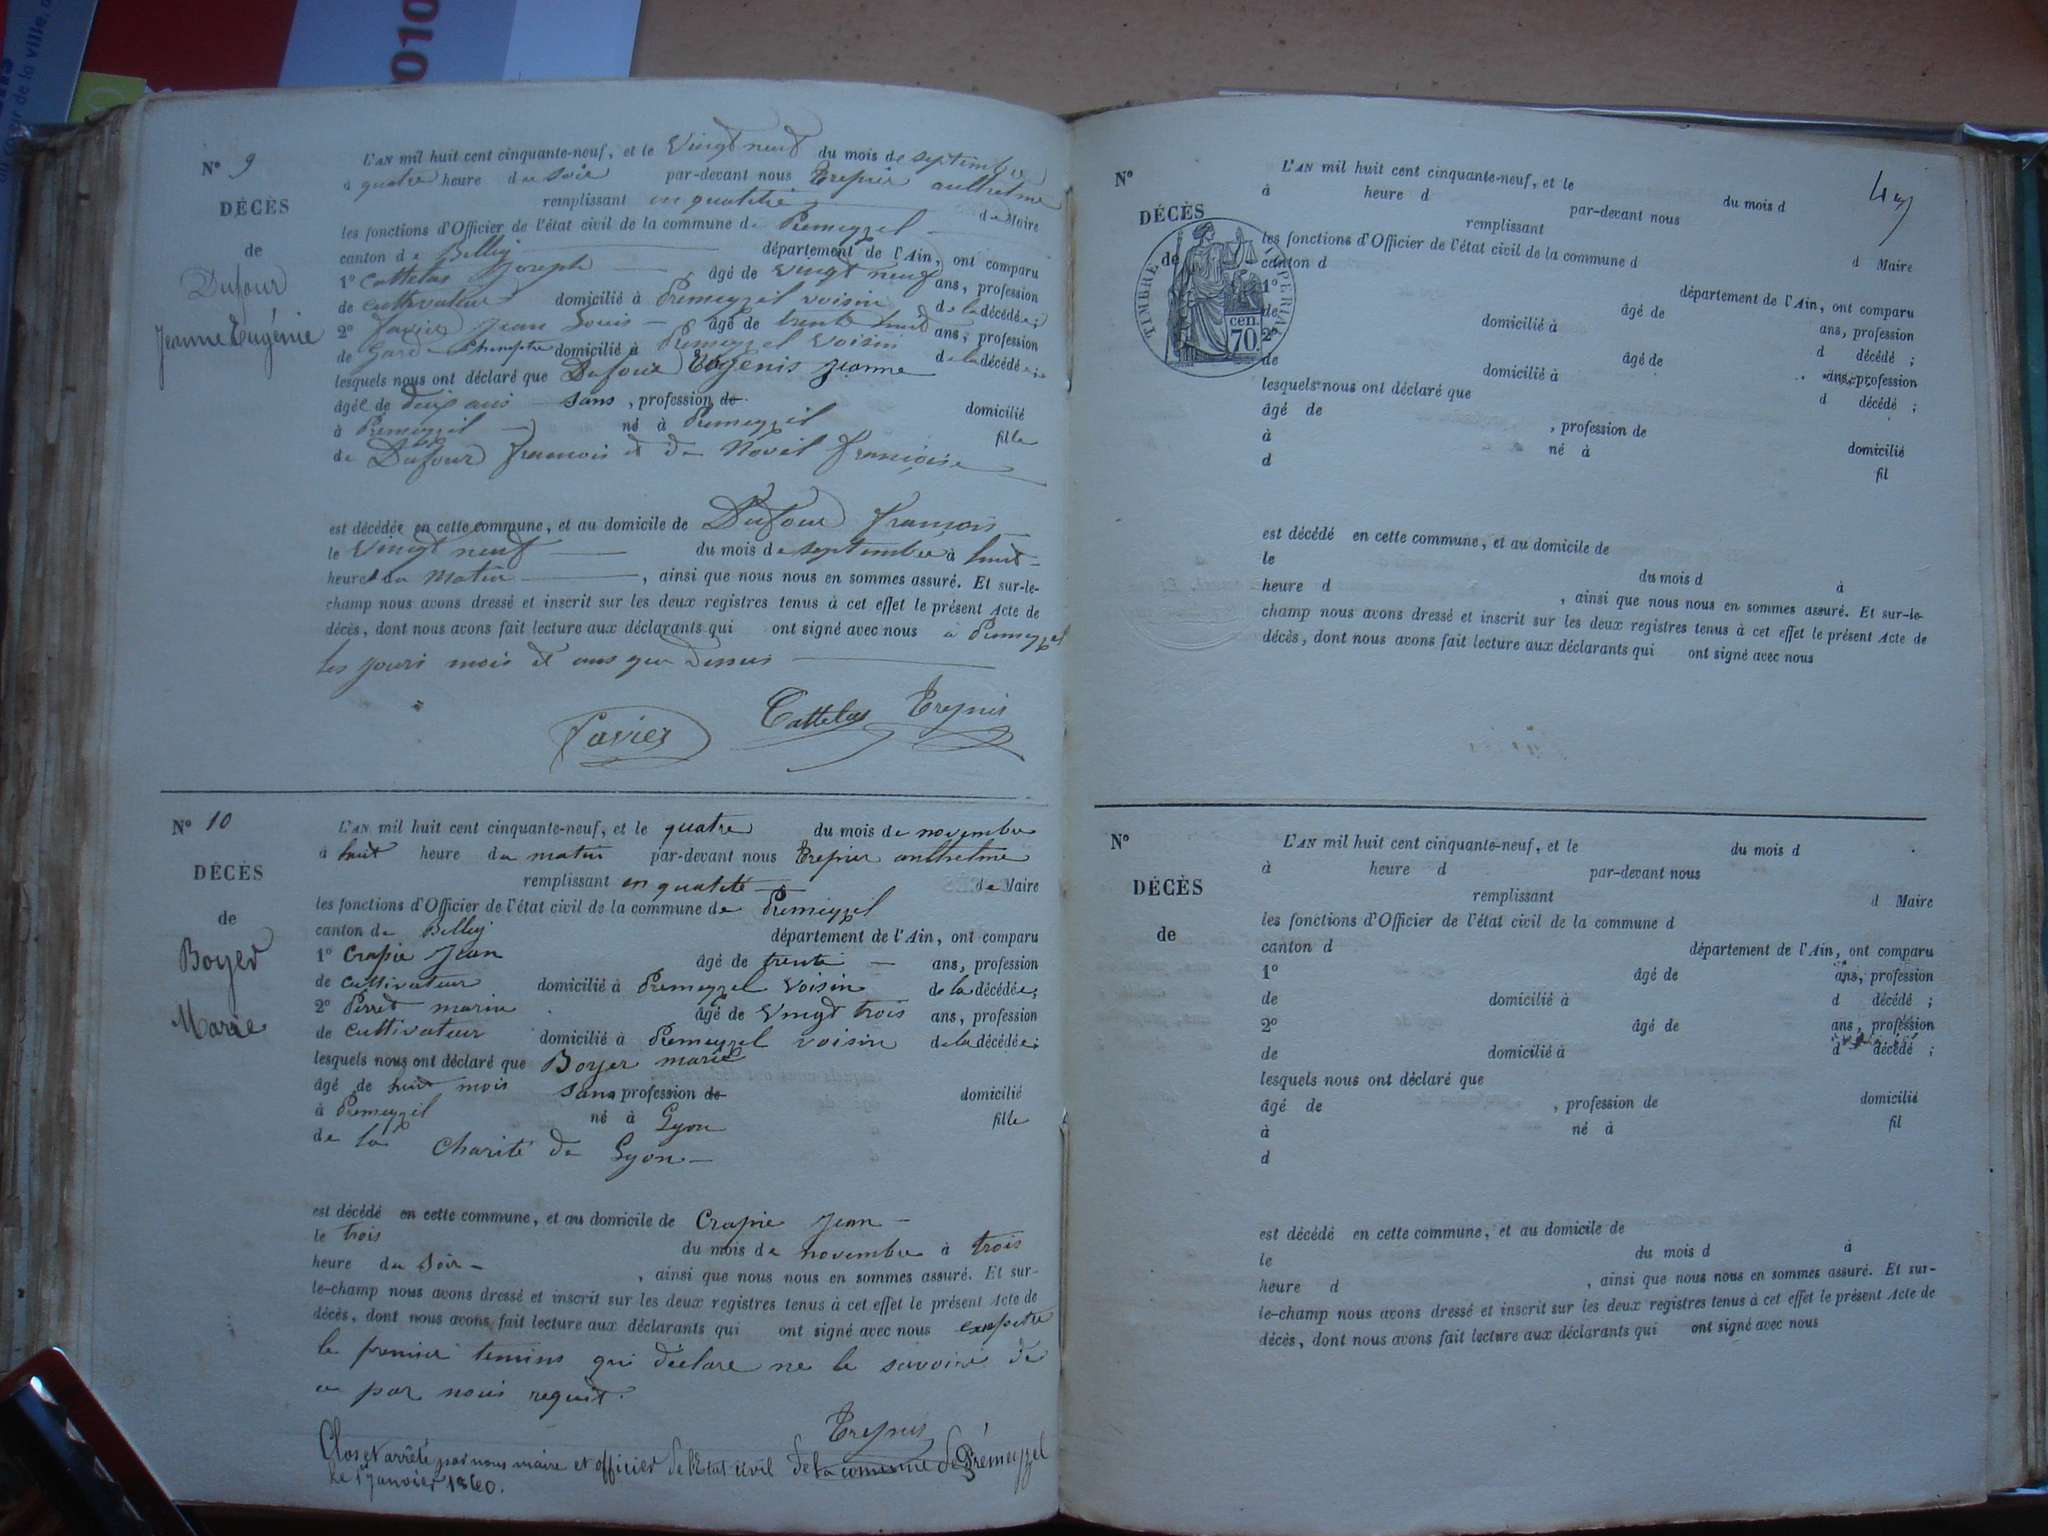 0010
N° 9
DÉCÈS
de
Dufour
Jeanne Eugénie
L'AN mil huit cent cinquante-neuf, et le Vingt neuf du mois de septembre
à quatre heure du soir par-devant nous Trepier anthelme
remplissant en qualitié de Maire
les fonctions d'Officier de l'état civil de la commune de Premeyzel
canton de Belley département de l'Ain, ont comparu
1° Cattelas Joseph âgé de vingt neuf ans, profession
de cultivateur domicilié à Premeyzel voisin de la décédée;
2° Favier Jean Louis âgé de trente huit ans, profession
de Garde Champetre domicilié à Premeyzel voisin de la décédée;
lesquels nous ont déclaré que Dufour Eugenis Jeanne
âgée de deux ans sans, profession de domicilié
à Premeyzel né à Premeyzel fille
de Dufour francois et de Novel françoise
est décédée en cette commune, et au domicile de Dufour francois
le Vingt neuf du mois de septembre à huit
heure du Matin, ainsi que nous nous en sommes assuré. Et sur-le-
champ nous avons dressé et inscrit sur les deux registres tenus à cet effet le présent Acte de
décès, dont nous avons fait lecture aux déclarants qui ont signé avec nous à Premeyzel
les jours mois et ans que dessus
Favier Cattelas Trepier
N° 10
DÉCÈS
de
Boyer
Marie
L'AN mil huit cent cinquante-neuf, et le quatre du mois de novembre
à huit heure du matin par-devant nous Trepier anthelme
remplissant en qualité de Maire
les fonctions d'Officier de l'état civil de la commune de Premeyzel
canton de Belley département de l'Ain, ont comparu
1° Crapie Jean âgé de trente ans, profession
de cultivateur domicilié à Premeyzel voisin de la décédée;
2° Perret marin âgé de Vingt trois ans, profession
de cultivateur domicilié à Premeyzel voisin de la décédée;
lesquels nous ont déclaré que Boyer marie
âgé de huit mois sans profession de domicilié
à Premeyzel né à Lyon fille
de la Charité de Lyon
est décédé en cette commune, et au domicile de Crapie Jean
le trois du mois de novembre à trois
heure du soir, ainsi que nous nous en sommes assuré. Et sur-
le-champ nous avons dressé et inscrit sur les deux registres tenus à cet effet le présent Acte de
décès, dont nous avons fait lecture aux déclarants qui ont signé avec nous
le premier temins qui déclare ne le savoire de
ce par nous requit.
Trepier
Clos et arrêté par nous maire et officier de l'Etat civil de la commune de Prémeyzel
Le 1er janvier 1860.
N°
DÉCÈS
de
TIMBRE IMPÉRIAL
70 cen.
L'AN mil huit cent cinquante-neuf, et le du mois d
à heure d par-devant nous
remplissant d Maire
les fonctions d'Officier de l'état civil de la commune d
canton d département de l'Ain, ont comparu
1° âgé de ans, profession
de domicilié à d décédé;
2° âgé de ans, profession
de domicilié à d décédé;
lesquels nous ont déclaré que
âgé de , profession de domicilié
à né à fil
d
est décédé en cette commune, et au domicile de
le du mois d à
heure d , ainsi que nous nous en sommes assuré. Et sur-le-
champ nous avons dressé et inscrit sur les deux registres tenus à cet effet le présent Acte de
décès, dont nous avons fait lecture aux déclarants qui ont signé avec nous
N°
DÉCÈS
de
L'AN mil huit cent cinquante-neuf, et le du mois d
à heure d par-devant nous
remplissant d Maire
les fonctions d'Officier de l'état civil de la commune d
canton d département de l'Ain, ont comparu
1° âgé de ans, profession
de domicilié à d décédé;
2° âgé de ans, profession
de domicilié à d décédé;
lesquels nous ont déclaré que
âgé de , profession de domicilié
à né à fil
d
est décédé en cette commune, et au domicile de
le du mois d à
heure d , ainsi que nous nous en sommes assuré. Et sur-
le-champ nous avons dressé et inscrit sur les deux registres tenus à cet effet le présent Acte de
décès, dont nous avons fait lecture aux déclarants qui ont signé avec nous